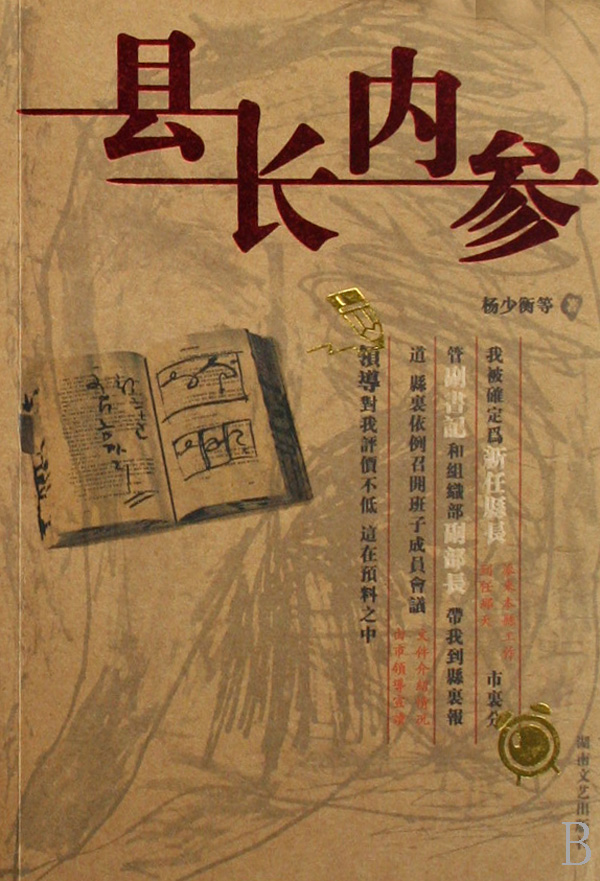 县长内参
杨少衡等 著
我被確定爲新任縣長 市裏分
管副書記和組織部副部長 帶我到縣裏報
道 縣裏依例召開班子成員會議
文件介紹情況
由市領導宣讀
領導對我評價不低 這在預料之中
湖南文艺出版社
B